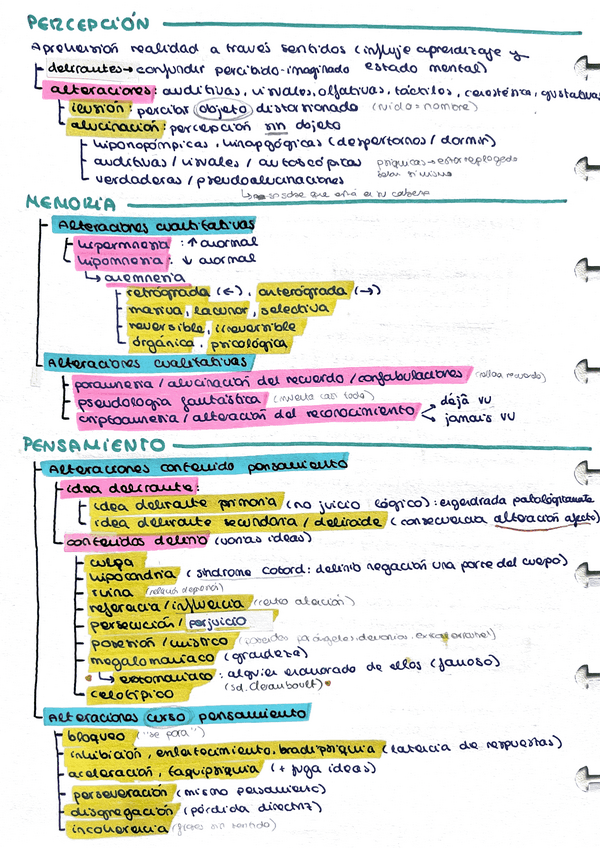 PERCEPCIÓN
Aprehensión realidad a través sentidos (influye aprendizaje y
delirantes → confundir percibido-imaginado estado mental)
alteraciones: auditivas, visuales, olfativas, táctiles, cenestésica, gustativas
ilusión: percibir objeto distorsionado (ruido=nombre)
alucinación: percepción sin objeto
hipnopómpicas, hipnagógicas (despertarnos / dormir)
auditivas / visuales / autoscópicas psíquicas →
verdaderas / pseudoalucinaciones
↳ sabe que está en su cabeza
MEMORIA
Alteraciones cuantitativas
hipermnesia: ↑ anormal
hipomnesia: ↓ anormal
↳ amnesia
retrógrada (←), anterógrada (→)
masiva, lacunar, selectiva
reversible, irreversible
orgánica, psicológica
Alteraciones cualitativas
paramnesia / alucinación del recuerdo / confabulaciones (rellena recuerdo)
pseudología fantástica (inventa casi todo)
criptomnesia / alteración del reconocimiento < déjà vu
jamais vu
PENSAMIENTO
Alteraciones contenido pensamiento
idea delirante:
idea delirante primaria (no juicio lógico): engendrada patológicamente
idea delirante secundaria / deliroide (consecuencia alteración afecto)
contenidos delirio (varias ideas)
culpa
hipocondría (síndrome cotard: delirio negación una parte del cuerpo)
ruina
referencia / influencia (centro atención)
persecución / perjuicio
posesión / místico
megalomaníaco (grandeza)
↳ erotomaníaco: alguien enamorado de ellos (famoso)
(sd. Clerambault)
celotípico
Alteraciones curso pensamiento
bloqueo ("se para")
inhibición, enlentecimiento, bradipsiquia (latencia de respuestas)
aceleración, taquipsiquia (+ fuga ideas)
perseveración (mismo pensamiento)
disgregación (pérdida directriz)
incoherencia (frases sin sentido)